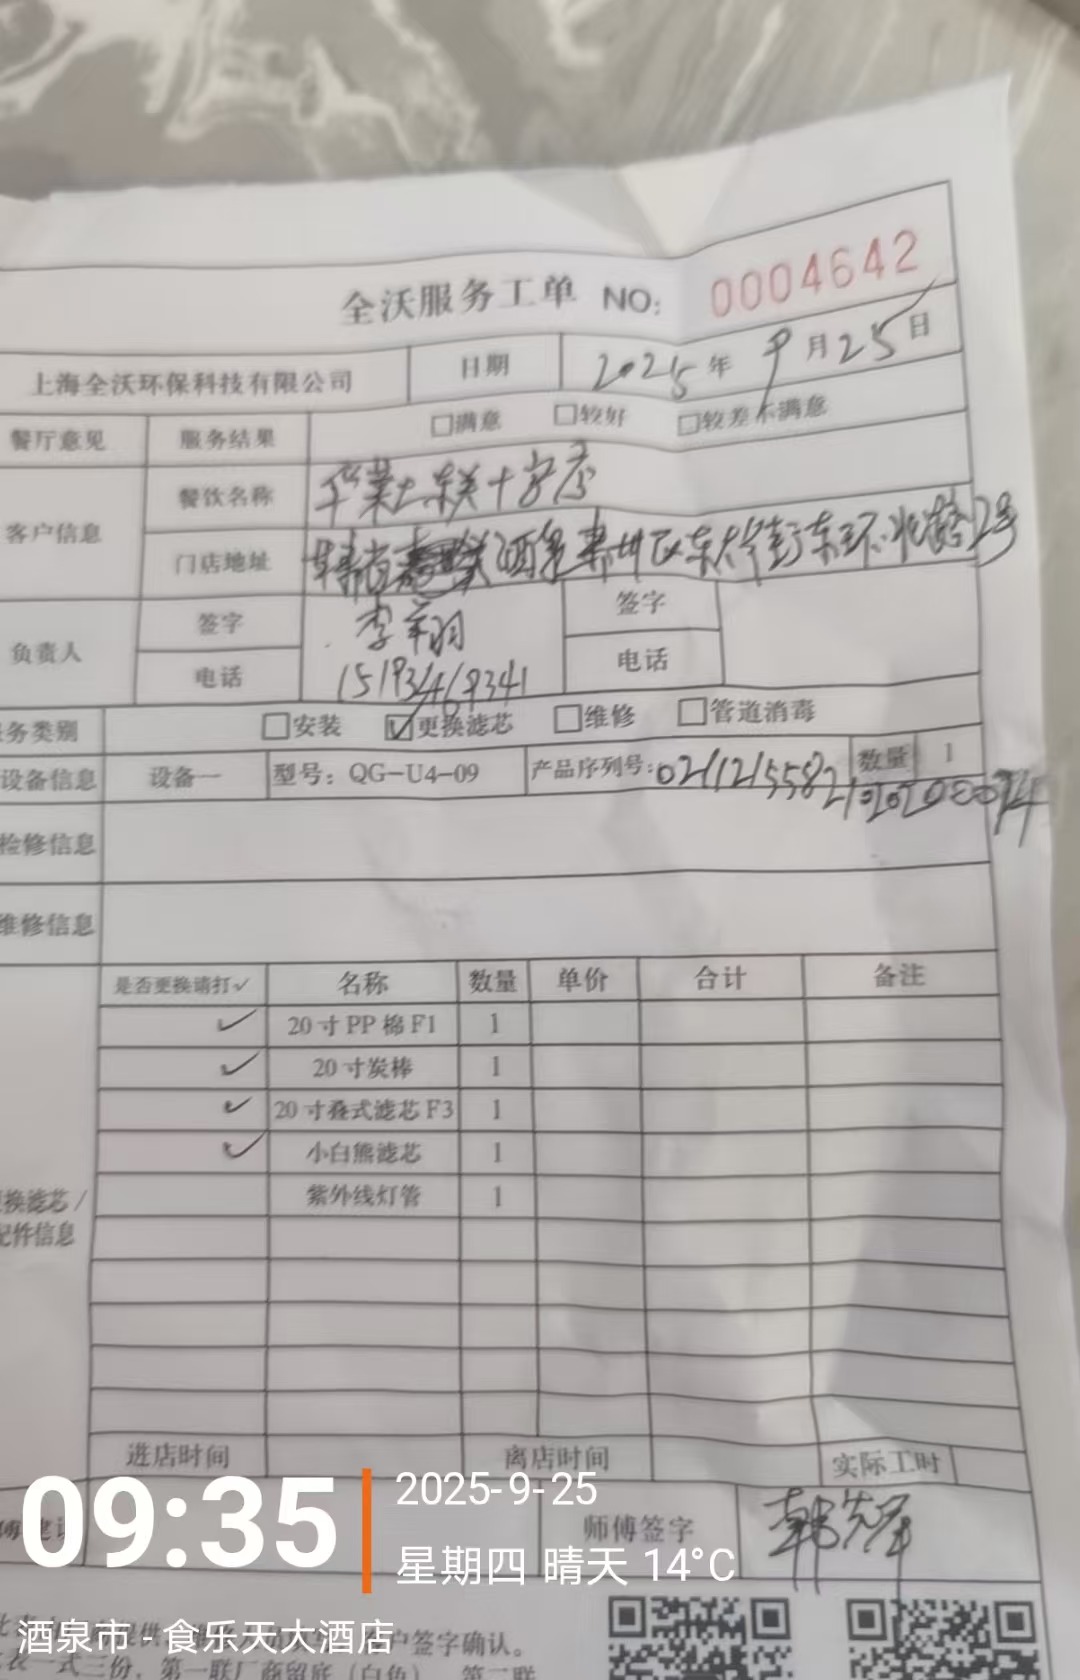 全沃服务工单 NO: 0004642
上海全沃环保科技有限公司 日期 2025年9月25日
餐厅意见 服务结果 □满意 □较好 □较差不满意
客户信息 餐饮名称 华莱士东关十字店
门店地址 酒泉肃州区东大街东环北路2号
负责人 签字 李翔 签字
电话 15193469341 电话
务类别 □安装 ☑更换滤芯 □维修 □管道消毒
设备信息 设备一 型号：QG-U4-09 产品序列号: 数量 1
检修信息
维修信息
是否更换请打✓ 名称 数量 单价 合计 备注
✓ 20寸PP棉F1 1
✓ 20寸炭棒 1
✓ 20寸叠式滤芯F3 1
✓ 小白熊滤芯 1
紫外线灯管 1
换滤芯/
配件信息
进店时间 离店时间 实际工时
师傅签字 韩辉
09:35
2025-9-25
星期四 晴天 14°C
酒泉市 - 食乐天大酒店
户签字确认。
一式三份，第一联厂商留底（白色），第二联